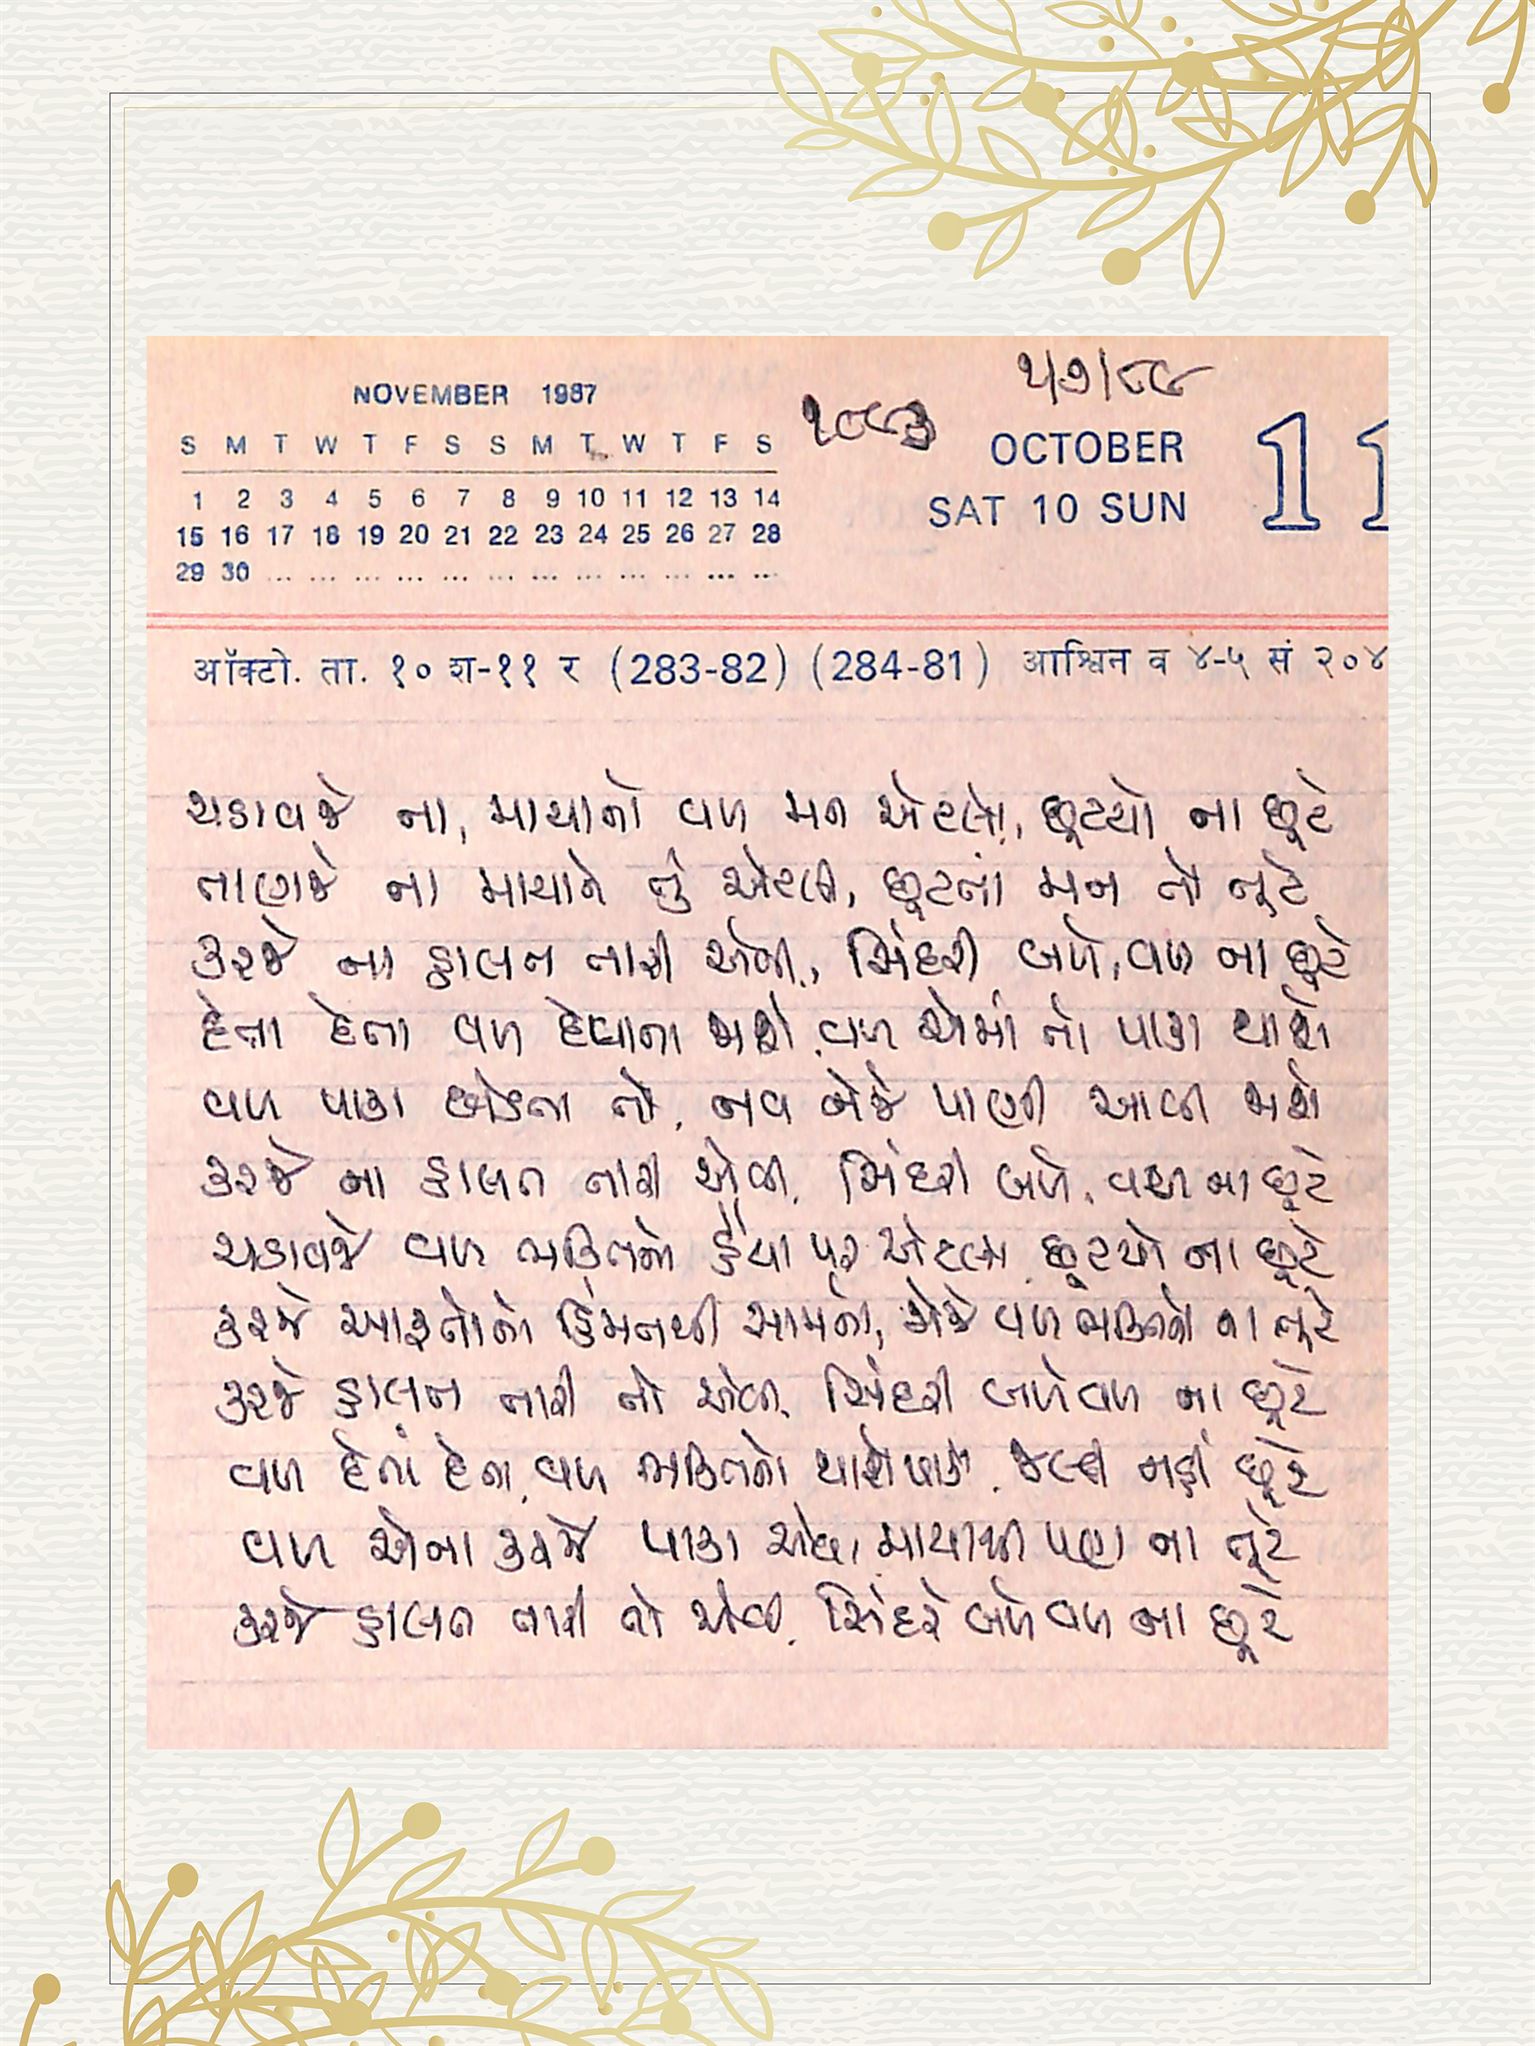 NOVEMBER 1987
S M T W T F S S M T W T F S
1 2 3 4 5 6 7 8 9 10 11 12 13 14
15 16 17 18 19 20 21 22 23 24 25 26 27 28
29 30 ... ... ... ... ... ... ... ... ... ... ... ...
૫/૭/૮૮
OCTOBER
SAT 10 SUN
11
ऑक्टो. ता. १० श-११ र (283-82) (284-81) आश्विन व ४-५ सं २०४
ચડાવજે ના, માયાનો વળ મન એટલો, છૂટયો ના છૂટે
તાણજે ના માયાને તું એટલી, છૂટતાં મન તો તૂટે
કરજે ના હાલત તારી એવી, સિંદરી બળે, વળ ના છૂટે
દેતા દેતા વળ દેવાતા જાશે, વળ એમાં તો પાકા થાશે
વળ પાકા છોડતા તો, નવ નેજે પાણી આવી જાશે
કરજે ના હાલત તારી એવી, સિંદરી બળે, વળ ના છૂટે
ચડાવજે વળ ભક્તિનો હૈયા પર એટલા છૂટયો ના છૂટે
કરજે આફતોનો હિંમતથી સામનો, જોજે વળ ભક્તિનો ના તૂટે
કરજે હાલત તારી તો એવી, સિંદરી બળે વળ ના છૂટે
વળ દેતાં દેતા, વળ ભક્તિનો થાશે પાકો, જલ્દી નહીં છૂટે
વળ એના કરજે પાકા એવા, માયાથી પણ ના તૂટે
કરજે હાલત તારી તો એવી, સિંદરી બળે વળ ના છૂટે